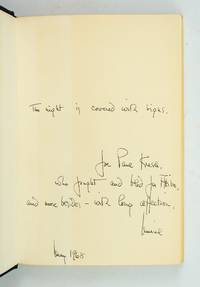 The night is covered with signs.
for Paul Kresh,
who fought and bled for Hirsh,
and more besides – with long affection,
Muriel
May 1968